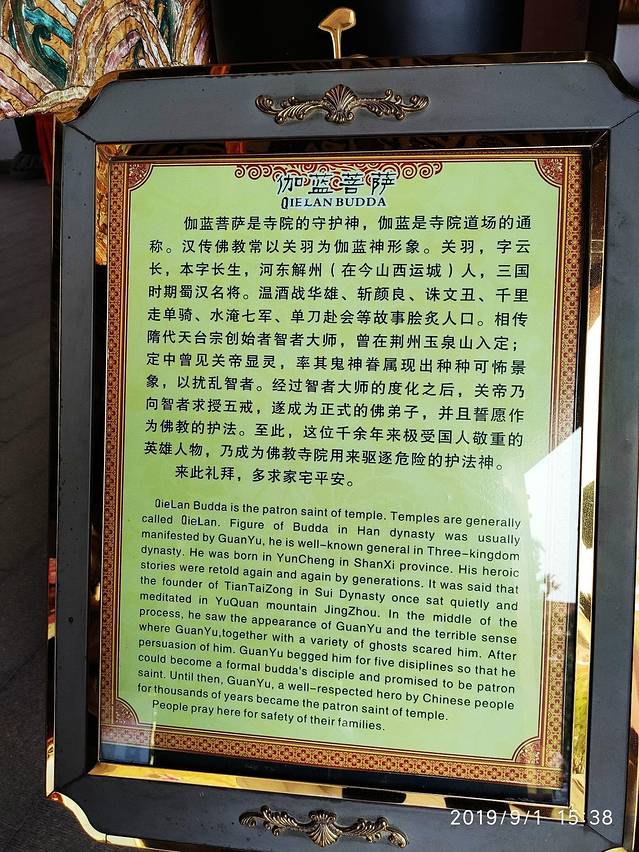 伽蓝菩萨
QIELAN BUDDA
伽蓝菩萨是寺院的守护神，伽蓝是寺院道场的通
称。汉传佛教常以关羽为伽蓝神形象。关羽，字云
长，本字长生，河东解州（在今山西运城）人，三国
时期蜀汉名将。温酒战华雄、斩颜良、诛文丑、千里
走单骑、水淹七军、单刀赴会等故事脍炙人口。相传
隋代天台宗创始者智者大师，曾在荆州玉泉山入定；
定中曾见关帝显灵，率其鬼神眷属现出种种可怖景
象，以扰乱智者。经过智者大师的度化之后，关帝乃
向智者求授五戒，遂成为正式的佛弟子，并且誓愿作
为佛教的护法。至此，这位千余年来极受国人敬重的
英雄人物，乃成为佛教寺院用来驱逐危险的护法神。
来此礼拜，多求家宅平安。
QieLan Budda is the patron saint of temple. Temples are generally
called QieLan. Figure of Budda in Han dynasty was usually
manifested by GuanYu, he is well-known general in Three-kingdom
dynasty. He was born in YunCheng in ShanXi province. His heroic
stories were retold again and again by generations. It was said that
the founder of TianTaiZong in Sui Dynasty once sat quietly and
meditated in YuQuan mountain JingZhou. In the middle of the
process, he saw the appearance of GuanYu and the terrible sense
where GuanYu,together with a variety of ghosts scared him. After
persuasion of him. GuanYu begged him for five disiplines so that he
could become a formal budda's disciple and promised to be patron
saint. Until then, GuanYu, a well-respected hero by Chinese people
for thousands of years became the patron saint of temple.
People pray here for safety of their families.
2019/9/1 15:38